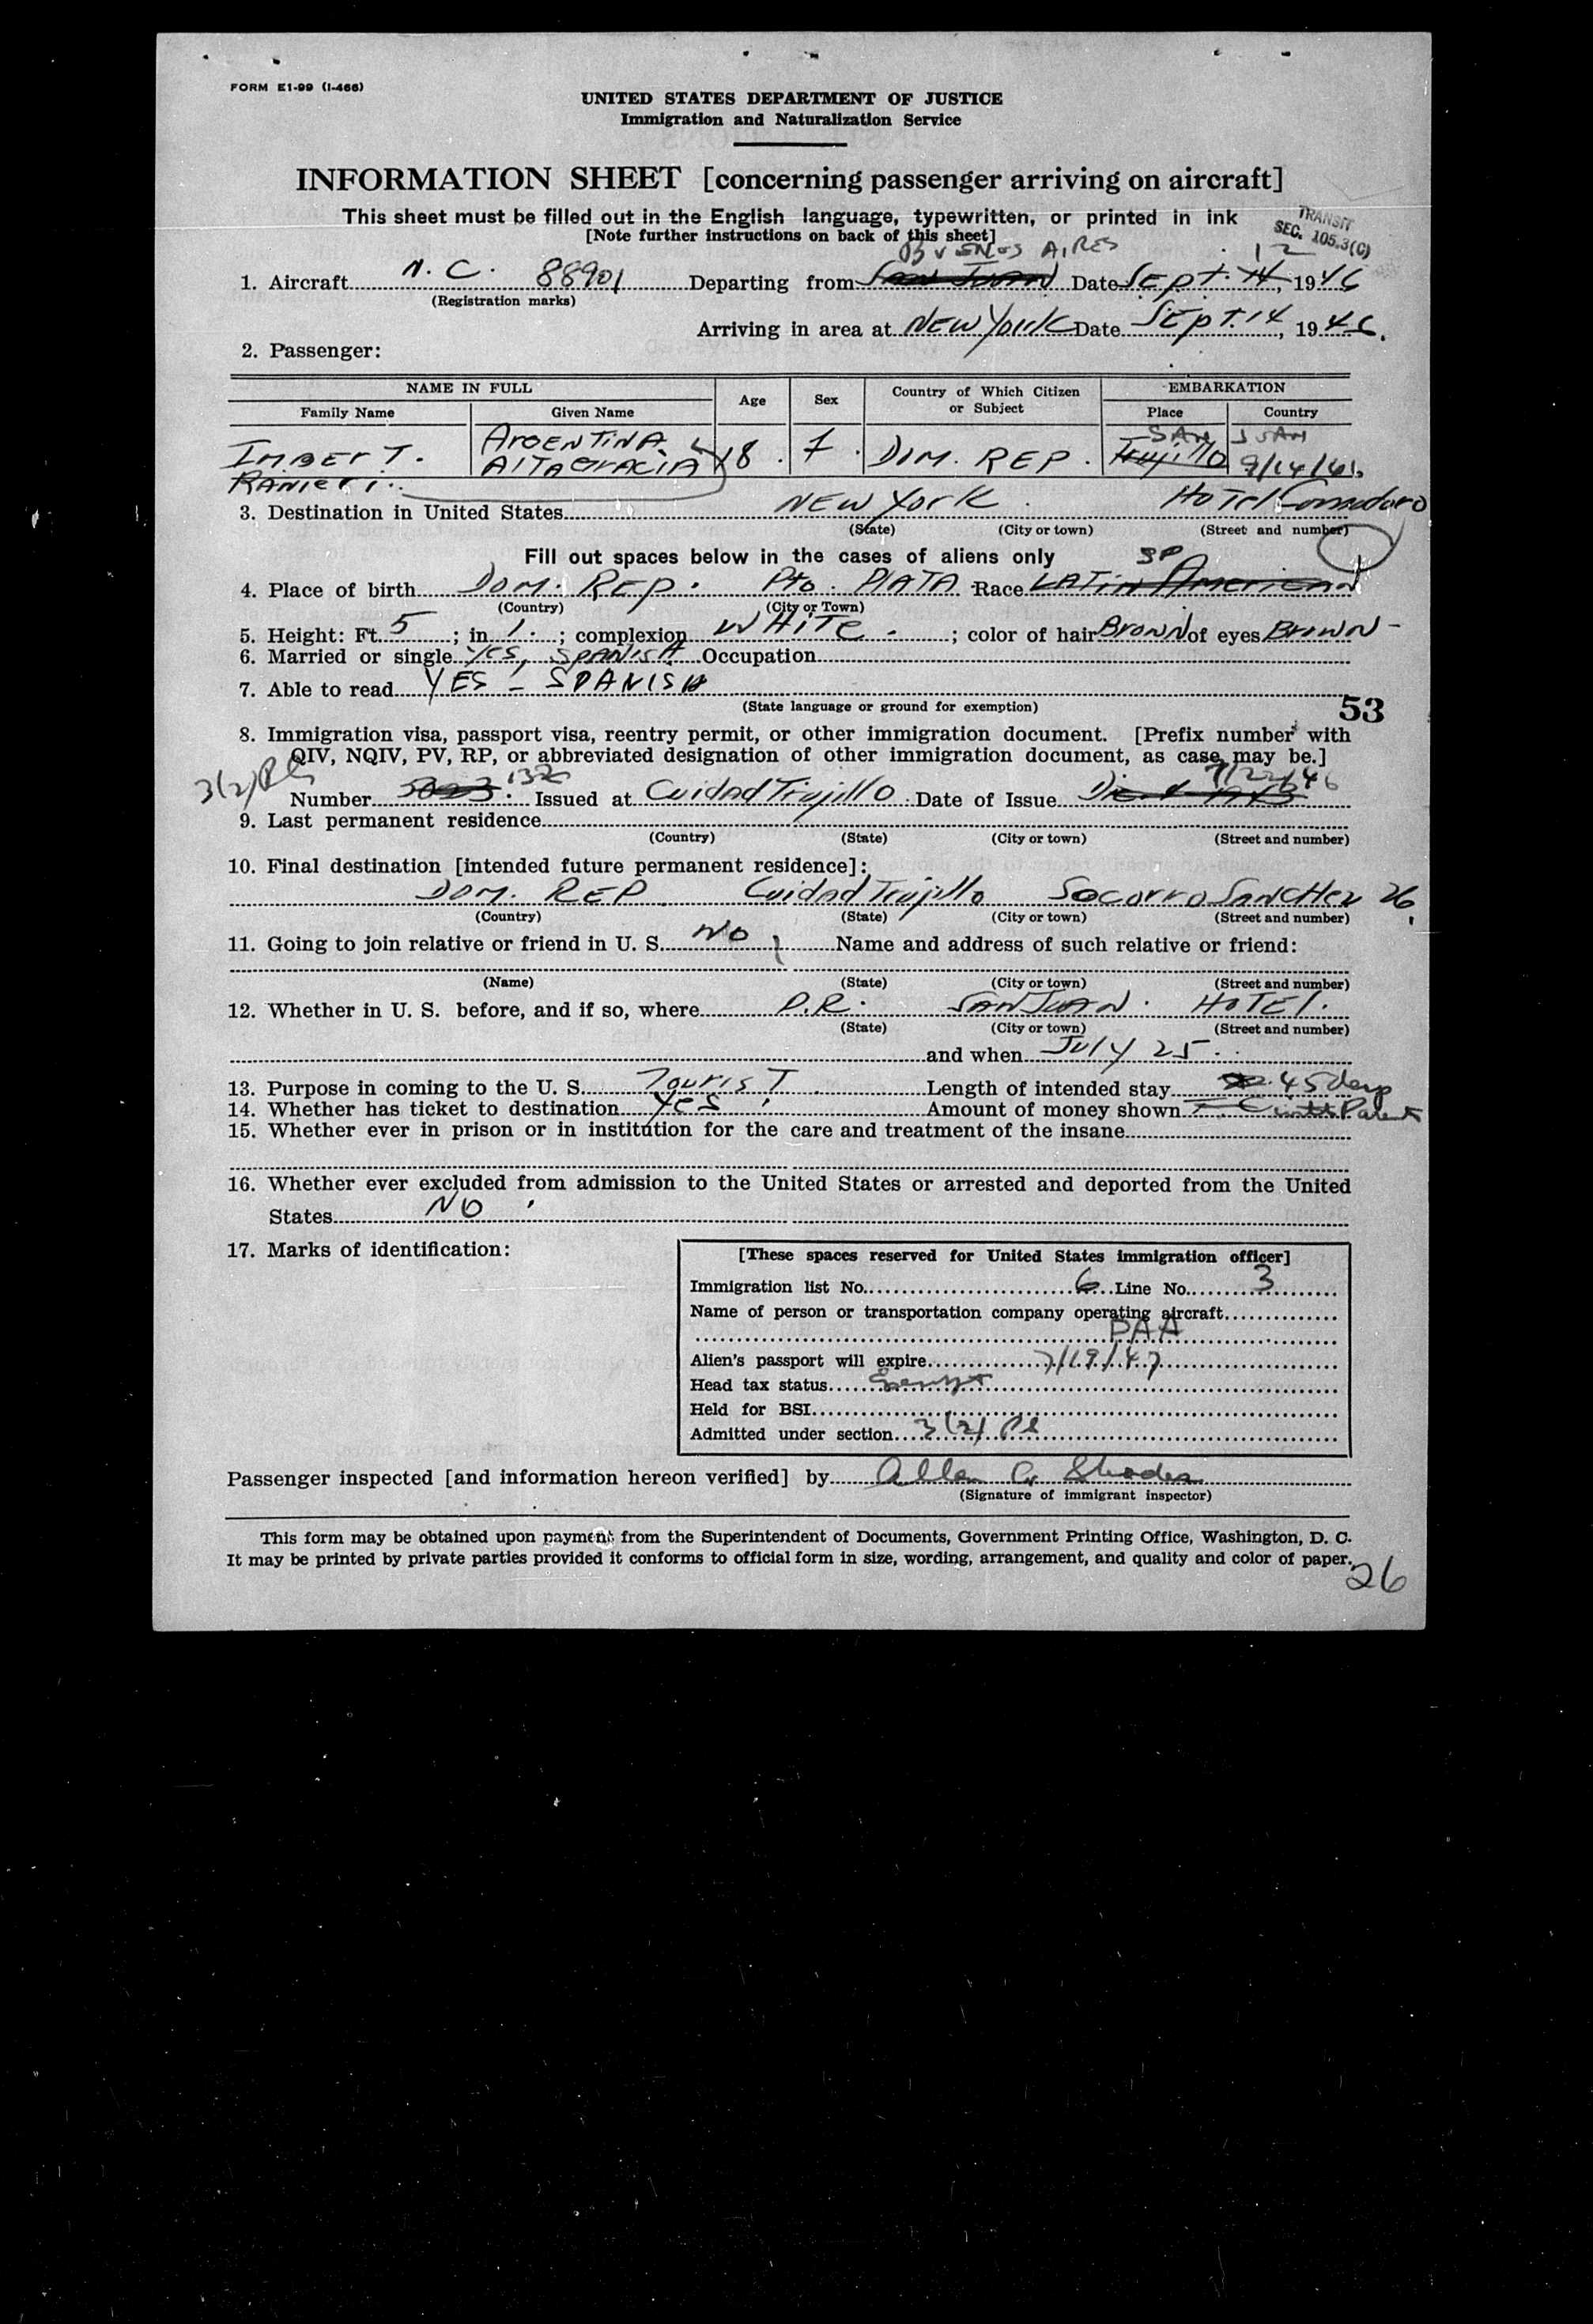 FORM E1-99 (I-466)
UNITED STATES DEPARTMENT OF JUSTICE
Immigration and Naturalization Service
INFORMATION SHEET [concerning passenger arriving on aircraft]
This sheet must be filled out in the English language, typewritten, or printed in ink
[Note further instructions on back of this sheet]
TRANSIT
SEC. 105.3(C)
BUENOS AIRES 12
1. Aircraft N.C. 88901 Departing from San Juan Date Sept. 14, 1946
(Registration marks)
Arriving in area at New York Date Sept. 14, 1946.
2. Passenger:
NAME IN FULL Age Sex Country of Which Citizen or Subject EMBARKATION
Family Name Given Name Place Country
ARGENTINA SAN JUAN
IMBERT T. ALTAGRACIA 18. f. DOM. REP. Trujillo 9/14/46
RANIERI.
3. Destination in United States NEW YORK HOTEL Comodoro
(State) (City or town) (Street and number)
Fill out spaces below in the cases of aliens only
SP
4. Place of birth DOM. REP. Pto. PLATA Race LATIN American
(Country) (City or Town)
5. Height: Ft. 5; in 1.; complexion WHITE.; color of hair BROWN of eyes BROWN-
6. Married or single Yes, SPANISH Occupation
7. Able to read YES - SPANISH
(State language or ground for exemption)
53
8. Immigration visa, passport visa, reentry permit, or other immigration document. [Prefix number with
QIV, NQIV, PV, RP, or abbreviated designation of other immigration document, as case may be.]
3(2)
132 7/22/46
Number Issued at Cuidad Trujillo. Date of Issue
9. Last permanent residence
(Country) (State) (City or town) (Street and number)
10. Final destination [intended future permanent residence]:
DOM. REP. Cuidad Trujillo Socorro Sanchez 26
(Country) (State) (City or town) (Street and number)
11. Going to join relative or friend in U. S. NO Name and address of such relative or friend:
(Name) (State) (City or town) (Street and number)
12. Whether in U. S. before, and if so, where P.R. SAN JUAN. HOTEL.
(State) (City or town) (Street and number)
and when July 25.
13. Purpose in coming to the U. S. Tourist Length of intended stay 45 days
14. Whether has ticket to destination Yes Amount of money shown with Parents
15. Whether ever in prison or in institution for the care and treatment of the insane
16. Whether ever excluded from admission to the United States or arrested and deported from the United
States NO
17. Marks of identification:
[These spaces reserved for United States immigration officer]
Immigration list No. 6 Line No. 3
Name of person or transportation company operating aircraft
PAA
Alien's passport will expire 7/19/47
Head tax status Exempt
Held for BSI
Admitted under section 3(2)
Passenger inspected [and information hereon verified] by Allen G. Rhodes
(Signature of immigrant inspector)
This form may be obtained upon payment from the Superintendent of Documents, Government Printing Office, Washington, D. C.
It may be printed by private parties provided it conforms to official form in size, wording, arrangement, and quality and color of paper.
26